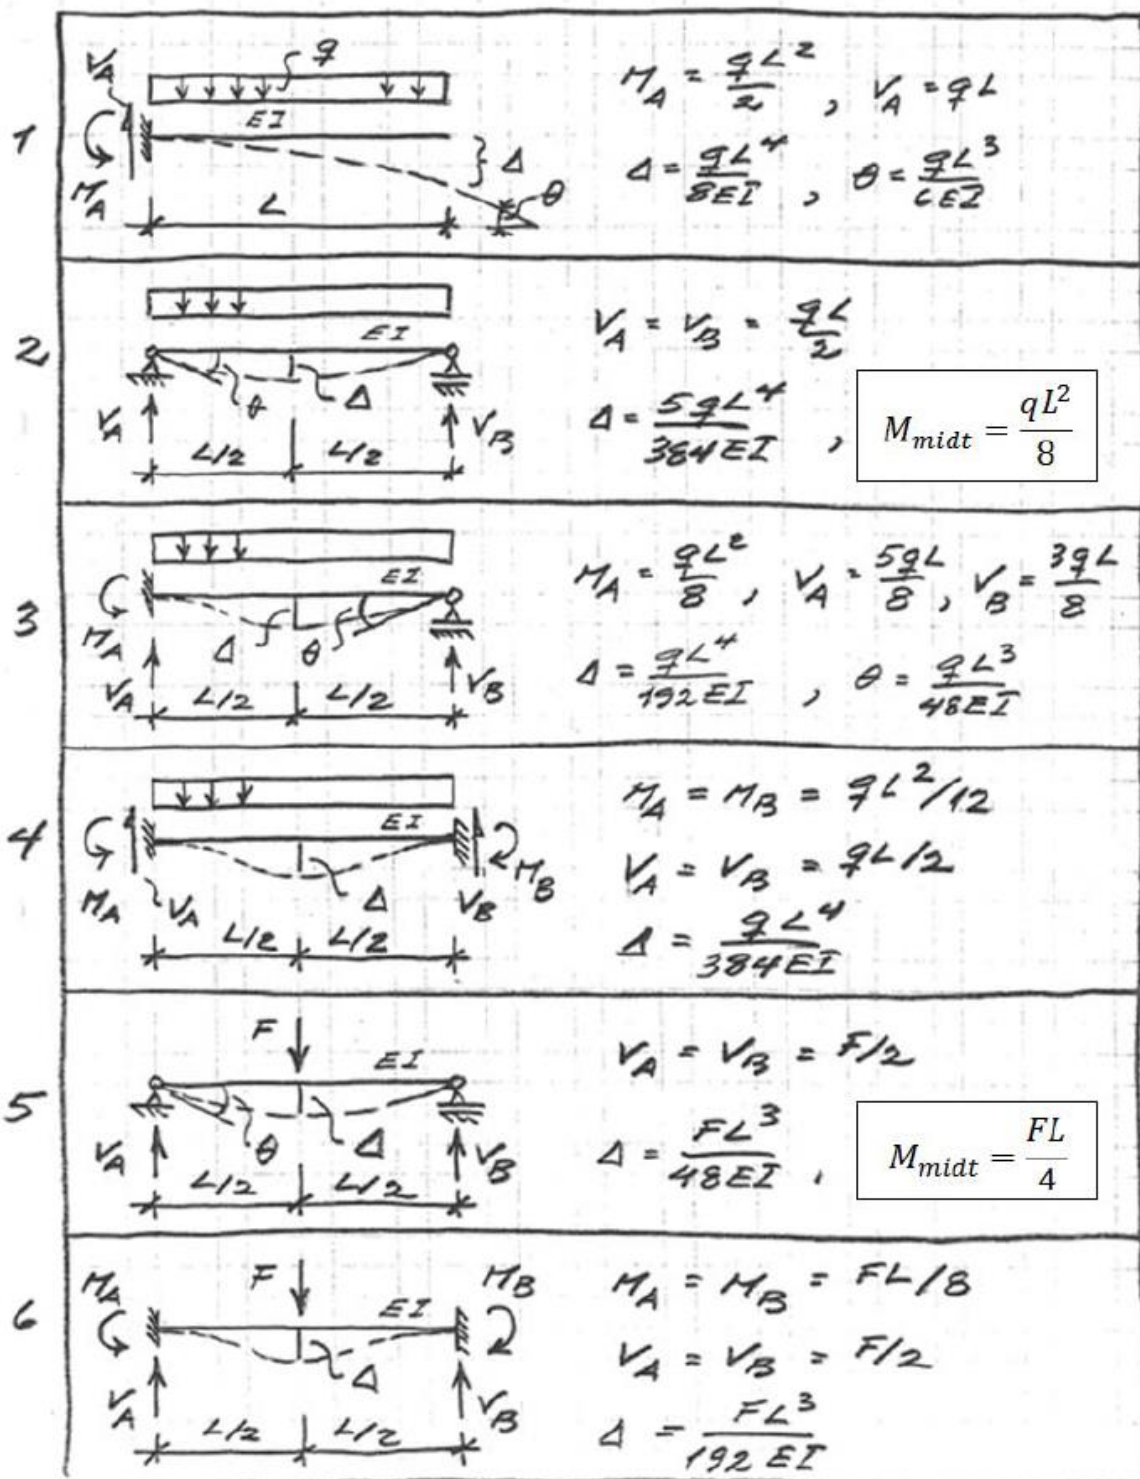 1
V_A
q
EI
M_A
Δ
θ
L
M_A = qL²/2 , V_A = qL
Δ = qL⁴/8EI , θ = qL³/6EI
2
EI
θ
Δ
V_A
V_B
L/2 L/2
V_A = V_B = qL/2
Δ = 5qL⁴/384EI , M_midt = qL²/8
3
EI
M_A
Δ θ
V_A
V_B
L/2 L/2
M_A = qL²/8 , V_A = 5qL/8 , V_B = 3qL/8
Δ = qL⁴/192EI , θ = qL³/48EI
4
EI
M_A V_A
Δ
V_B M_B
L/2 L/2
M_A = M_B = qL²/12
V_A = V_B = qL/2
Δ = qL⁴/384EI
5
F
EI
θ Δ
V_A
V_B
L/2 L/2
V_A = V_B = F/2
Δ = FL³/48EI , M_midt = FL/4
6
M_A
F
EI
M_B
Δ
V_A
V_B
L/2 L/2
M_A = M_B = FL/8
V_A = V_B = F/2
Δ = FL³/192EI